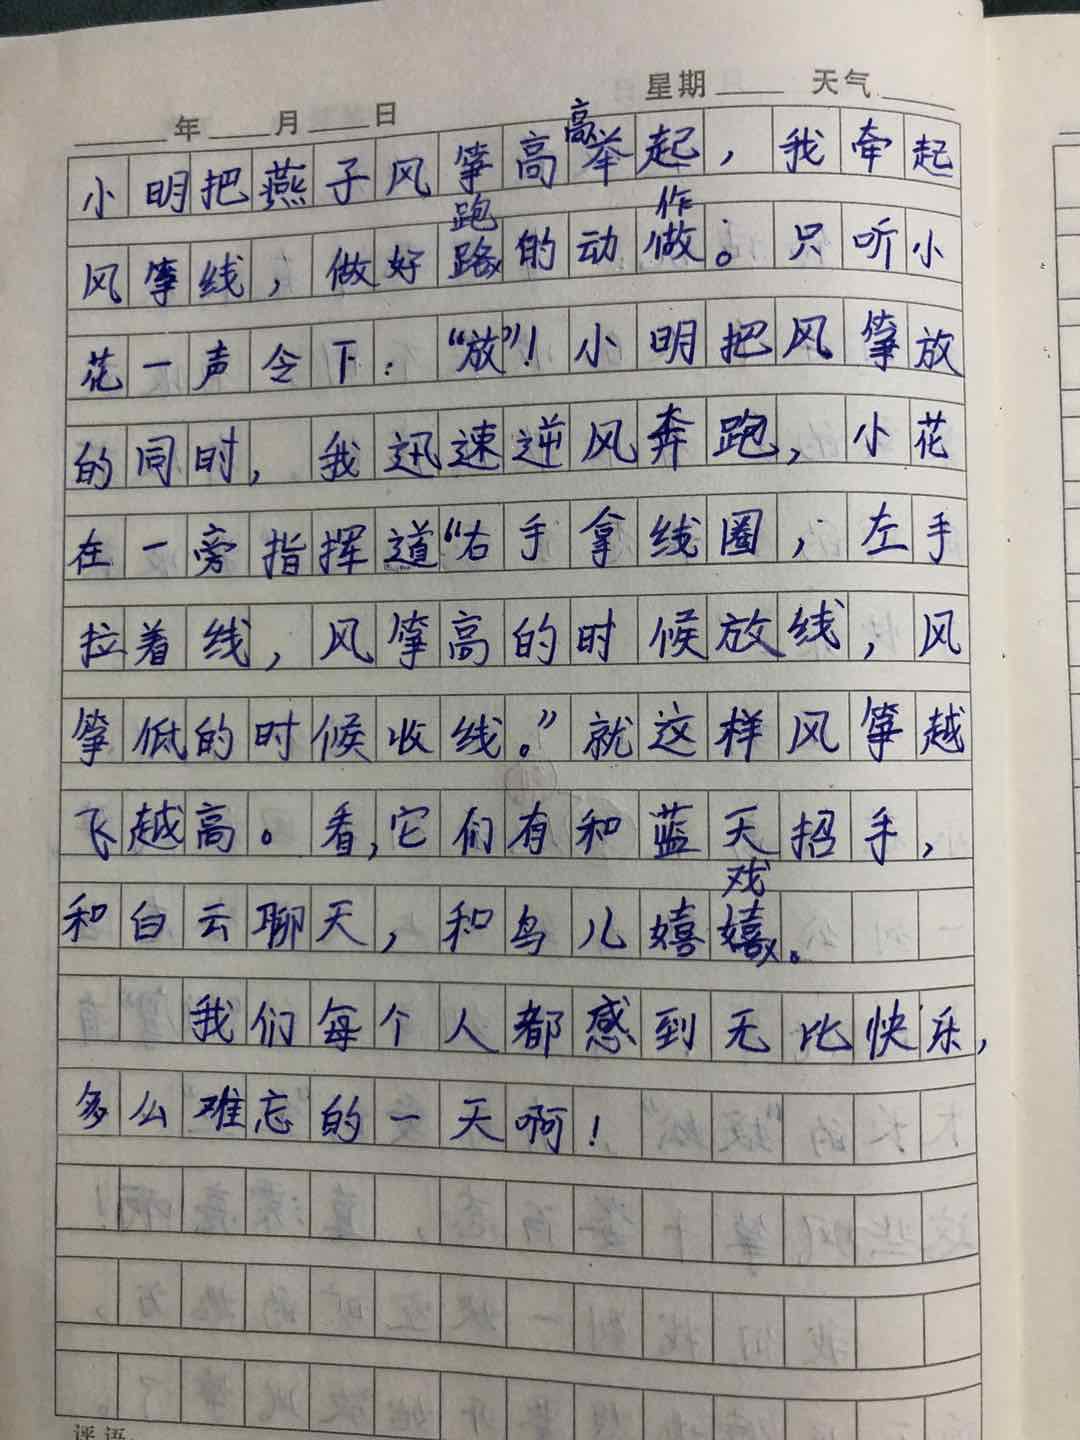 星期 天气
年 月 日
小明把燕子风筝高高举起，我牵起
风筝线，做好跑的动作。只听小
花一声令下：“放”！小明把风筝放
的同时，我迅速逆风奔跑，小花
在一旁指挥道“右手拿线圈，左手
拉着线，风筝高的时候放线，风
筝低的时候收线。”就这样风筝越
飞越高。看，它们有和蓝天招手，
和白云聊天，和鸟儿嬉戏。
我们每个人都感到无比快乐，
多么难忘的一天啊！
评语